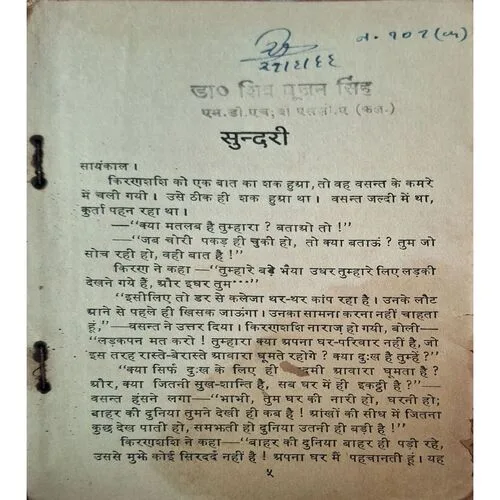 न. १०१
डा० शिव पूजन सिंह
एम. डी. एच;
सुन्दरी
सायंकाल।
किरणशशि को एक बात का शक हुआ, तो वह वसन्त के कमरे
में चली गयी। उसे ठीक ही शक हुआ था। वसन्त जल्दी में था,
कुर्ता पहन रहा था।
—“क्या मतलब है तुम्हारा? बताओ तो!”
—“जब चोरी पकड़ ही चुकी हो, तो क्या बताऊं? तुम जो
सोच रही हो, वही बात है!”
किरण ने कहा—“तुम्हारे बड़े भैया उधर तुम्हारे लिए लड़की
देखने गये हैं, और इधर तुम···”
“इसीलिए तो डर से कलेजा थर-थर कांप रहा है। उनके लौट
आने से पहले ही खिसक जाऊंगा। उनका सामना करना नहीं चाहता
हूं,”—वसन्त ने उत्तर दिया। किरणशशि नाराज हो गयी, बोली—
“लड़कपन मत करो! तुम्हारा क्या अपना घर-परिवार नहीं है, जो
इस तरह रास्ते-बेरास्ते आवारा घूमते रहोगे? क्या दुःख है तुम्हें?”
“क्या सिर्फ दुःख के लिए ही दमी आवारा घूमता है?
और, क्या जितनी सुख-शान्ति है, सब घर में ही इकट्ठी है?”—
वसन्त हंसने लगा—“भाभी, तुम घर की नारी हो, घरनी हो;
बाहर की दुनिया तुमने देखी ही कब है! आंखों की सीध में जितना
कुछ देख पाती हो, समझती हो दुनिया उतनी ही बड़ी है!”
किरणशशि ने कहा—“बाहर की दुनिया बाहर ही पड़ी रहे,
उससे मुझे कोई सिरदर्द नहीं है! अपना घर मैं पहचानती हूं। यह
५